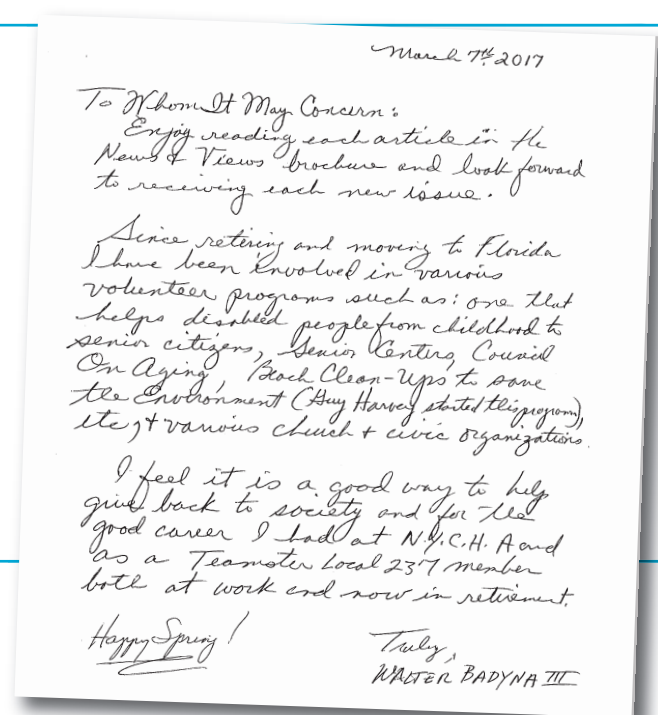 March 7th, 2017
To Whom It May Concern:
Enjoy reading each article in the
News & Views brochure and look forward
to receiving each new issue.
Since retiring and moving to Florida
I have been involved in various
volunteer programs such as: one that
helps disabled people from childhood to
senior citizens, Senior Centers, Council
On Aging, Beach Clean-Ups to save
the Environment (Guy Harvey started this program),
etc, & various church & civic organizations.
I feel it is a good way to help
give back to society and for the
good career I had at N.Y.C.H.A and
as a Teamster Local 237 member
both at work and now in retirement.
Happy Spring!
Truly,
WALTER BADYNA III